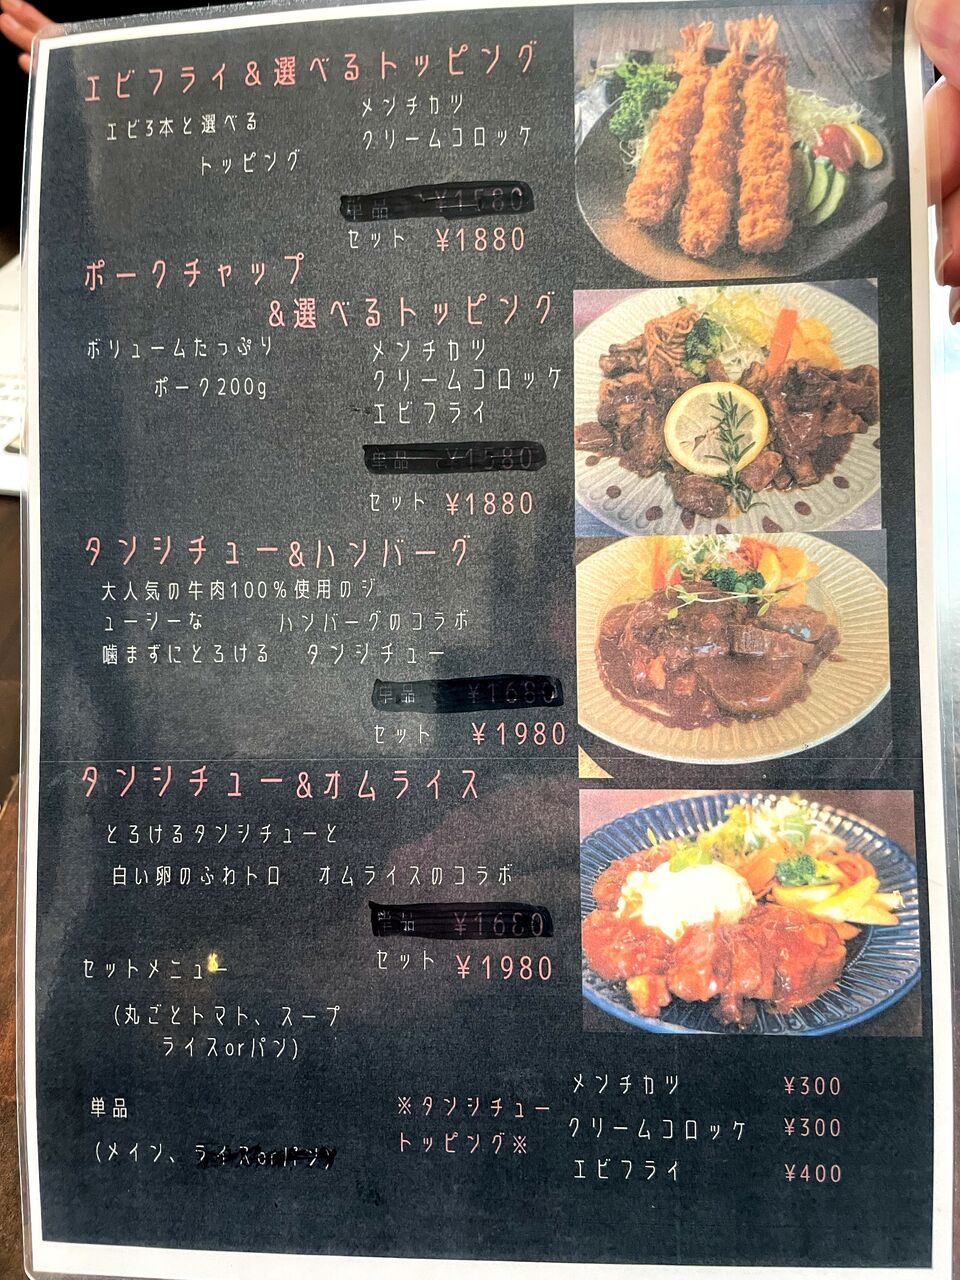 エビフライ&選べるトッピング
エビ3本と選べる
トッピング
メンチカツ
クリームコロッケ
単品 ¥1580
セット ¥1880
ポークチャップ
&選べるトッピング
ボリュームたっぷり
ポーク200g
メンチカツ
クリームコロッケ
エビフライ
単品 ¥1580
セット ¥1880
タンシチュー&ハンバーグ
大人気の牛肉100%使用のジ
ューシーな ハンバーグのコラボ
噛まずにとろける タンシチュー
単品 ¥1680
セット ¥1980
タンシチュー&オムライス
とろけるタンシチューと
白い卵のふわトロ オムライスのコラボ
単品 ¥1680
セット ¥1980
セットメニュー
(丸ごとトマト、スープ
ライスorパン)
単品
(メイン、ライスorパン)
※タンシチュー
トッピング※
メンチカツ ¥300
クリームコロッケ ¥300
エビフライ ¥400